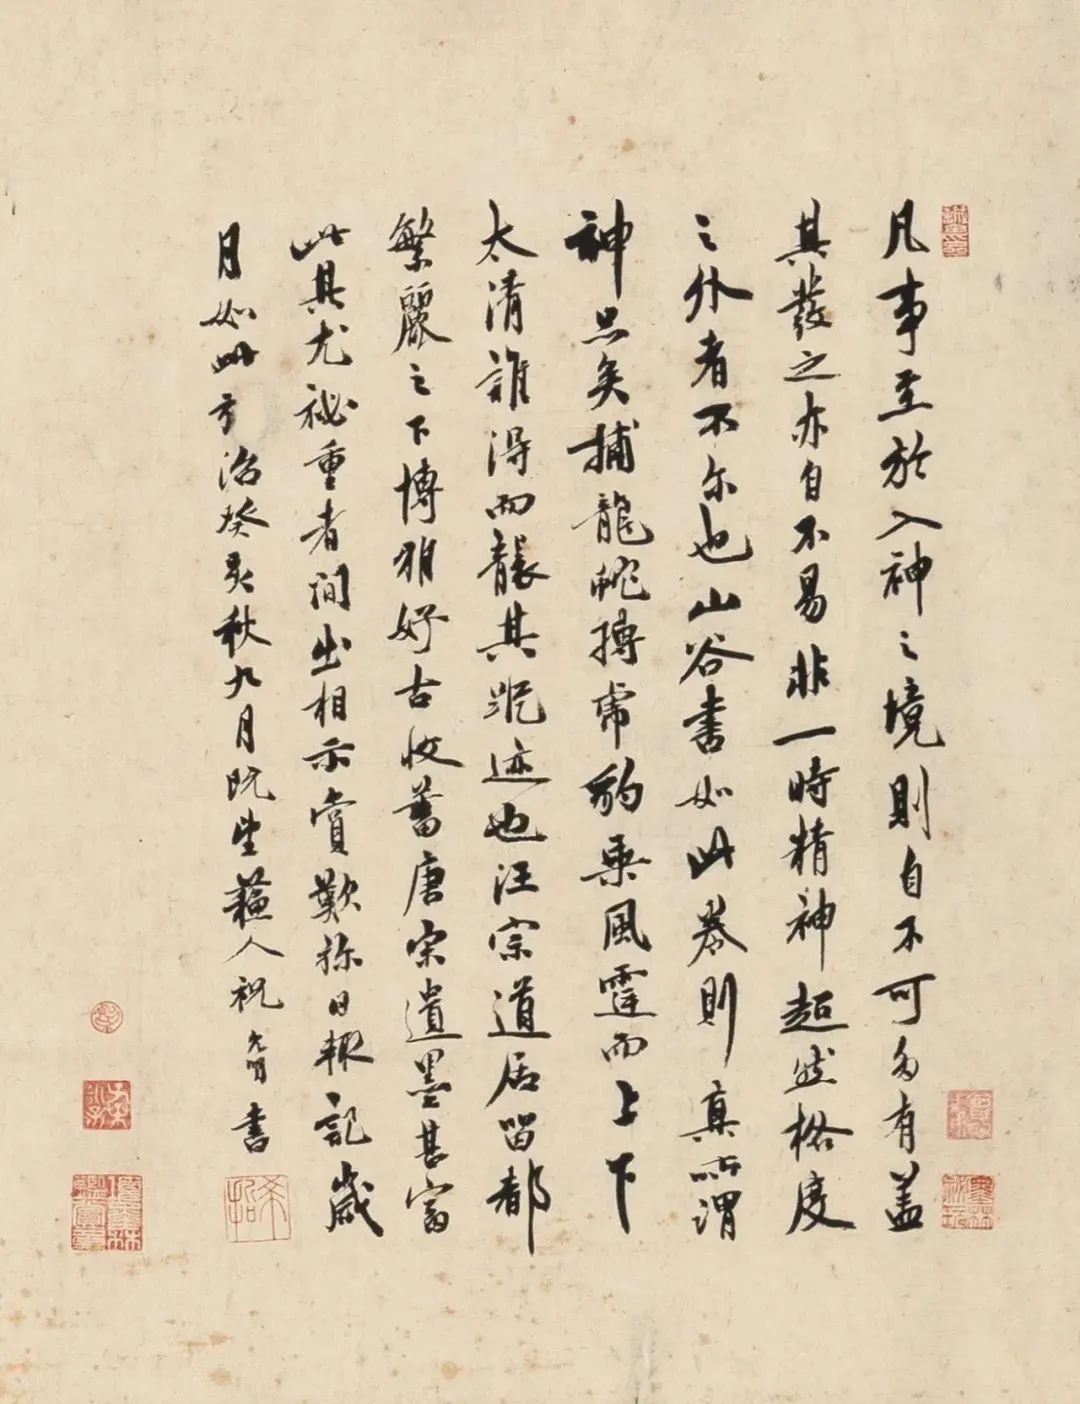 凡事至於入神之境則自不可多有盖
其發之亦自不易非一時精神超然格度
之外者不尔也山谷書如此卷則真所謂
神品矣捕龍蛇搏虎豹乘風霆而上下
太清誰得而襲其踪迹也汪宗道居留都
繁麗之下博雅好古收蓄唐宋遺墨甚富
此其尤祕重者間出相示賞歎弥日輙記歲
月如此弘治癸亥秋九月既望蘇人祝允明書